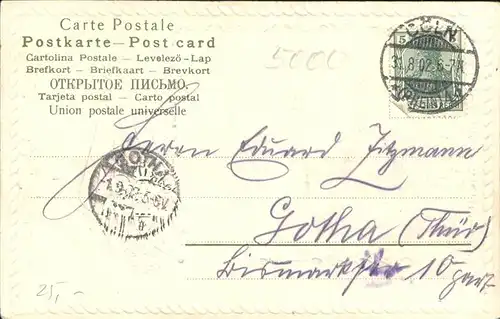 Carte Postale
Postkarte — Post card
Cartolina Postale – Levelező-Lap
Brefkort – Briefkaart – Brevkort
ОТКРЫТОЕ ПИСЬМО.
Tarjeta postal – Carto postal
Union postale universelle
5000
5
CÖLN
31.8.02.6-7N.
(RHEIN)
Herrn Eduard
GOTHA
1.9.02.5-6V.
Gotha (Thür)
Bismarckstr 10 part.
25,-